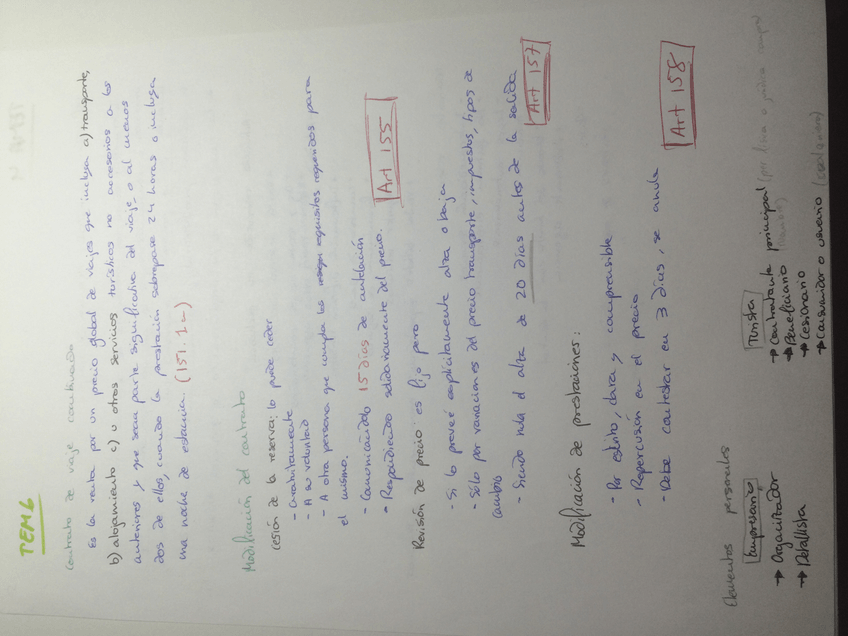 TEMA 6
Contrato de viaje combinado
Es la venta por un precio global de viajes que incluya a) transporte,
b) alojamiento c) u otros servicios turísticos no accesorios a los
anteriores y que sean parte significativa del viaje, o al menos
dos de ellos, cuando la prestación sobrepase 24 horas o incluya
una noche de estancia. (151.1a)
Modificación del contrato
Cesión de la reserva: lo puede ceder
- Gratuitamente
- A su voluntad
- A otra persona que cumpla los requisitos requeridos para
el mismo.
- Comunicándolo 15 días de antelación
- Respondiendo solidariamente del precio.
Art 155
Revisión de precio: es fijo pero
- Si lo prevee explícitamente alza o baja
- Sólo por variaciones del precio transporte, impuestos, tipos de
cambio
- Siendo nula el alza de 20 días antes de la salida
Art 157
Modificación de prestaciones:
- Por escrito, clara y comprensible
- Repercusión en el precio
- Debe contestar en 3 días, se anula
Art 158
Elementos personales
Empresario
→ Organizador
→ Detallista
Turista
→ Contratante principal (por física o jurídica compra)
→ Beneficiario
→ Cesionario
→ Consumidor o usuario